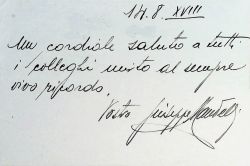 14.8 XVIII
Un cordiale saluto a tutti
i colleghi unito al sempre
vivo ricordo.
Vostro Giuseppe